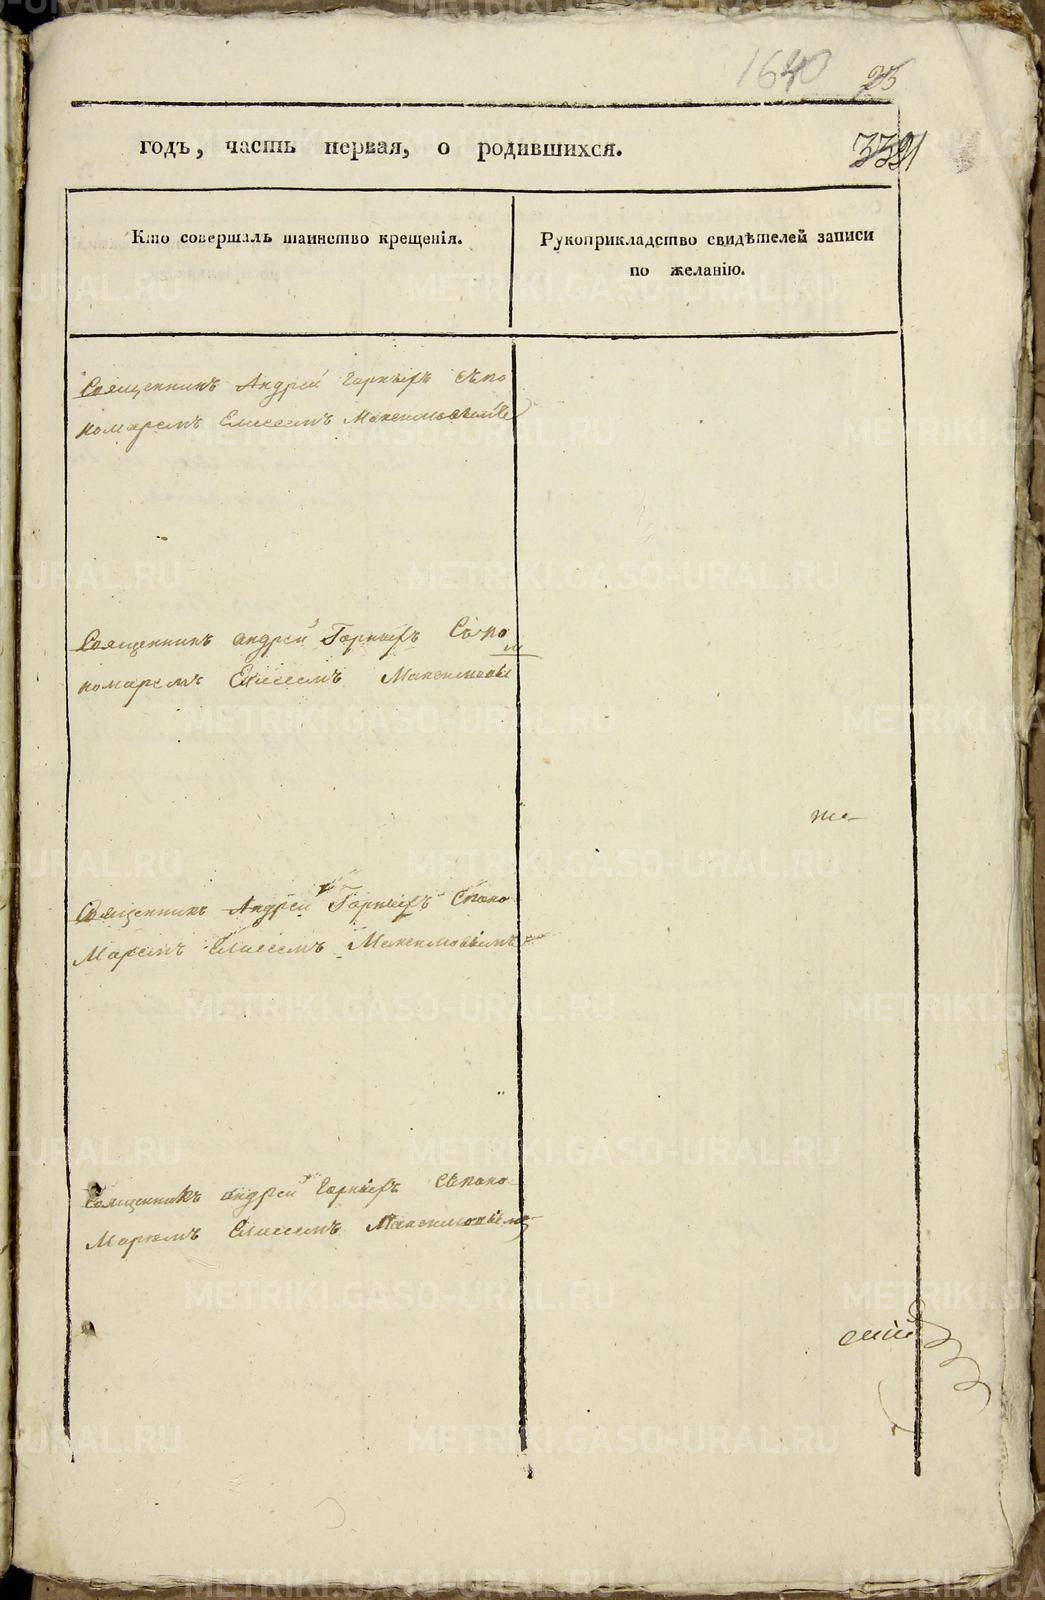 1640
25
годъ, часть первая, о родившихся.
Кто совершалъ таинство крещенія.
Рукоприкладство свидѣтелей записи
по желанію.
Священникъ Андрей Горныхъ Съ по
номаремъ Елисеемъ Максимовымъ
Священникъ Андрей Горныхъ Съ по
номаремъ Елисеемъ Максимовым
Священникъ Андрей Горныхъ Споно
Маремъ Елисеемъ Максимовымъ
Священникъ андрей Горныхъ Съ поно
Маремъ Елисеемъ Максимовымъ
METRIKI.GASO-URAL.RU